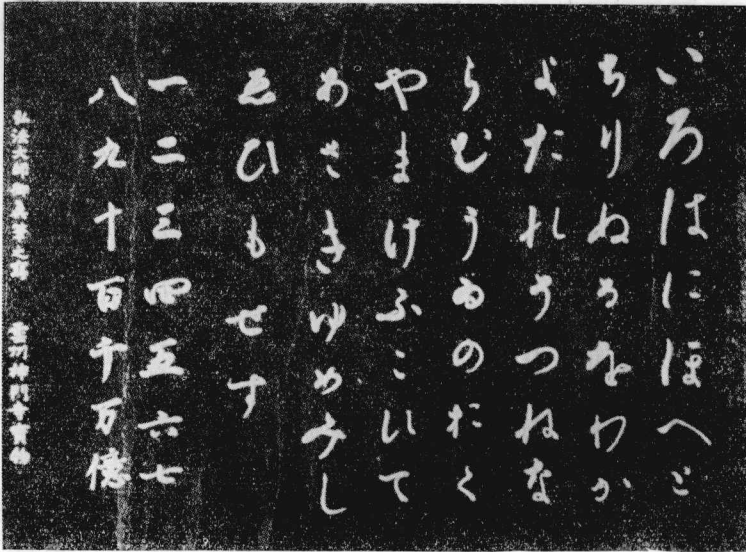 いろはにほへと
ちりぬるをわか
よたれそつねな
らむうゐのおく
やまけふこえて
あさきゆめみし
ゑひもせす
一二三四五六七
八九十百千万億
弘法大師御真筆之寫 雲州神門寺寶物